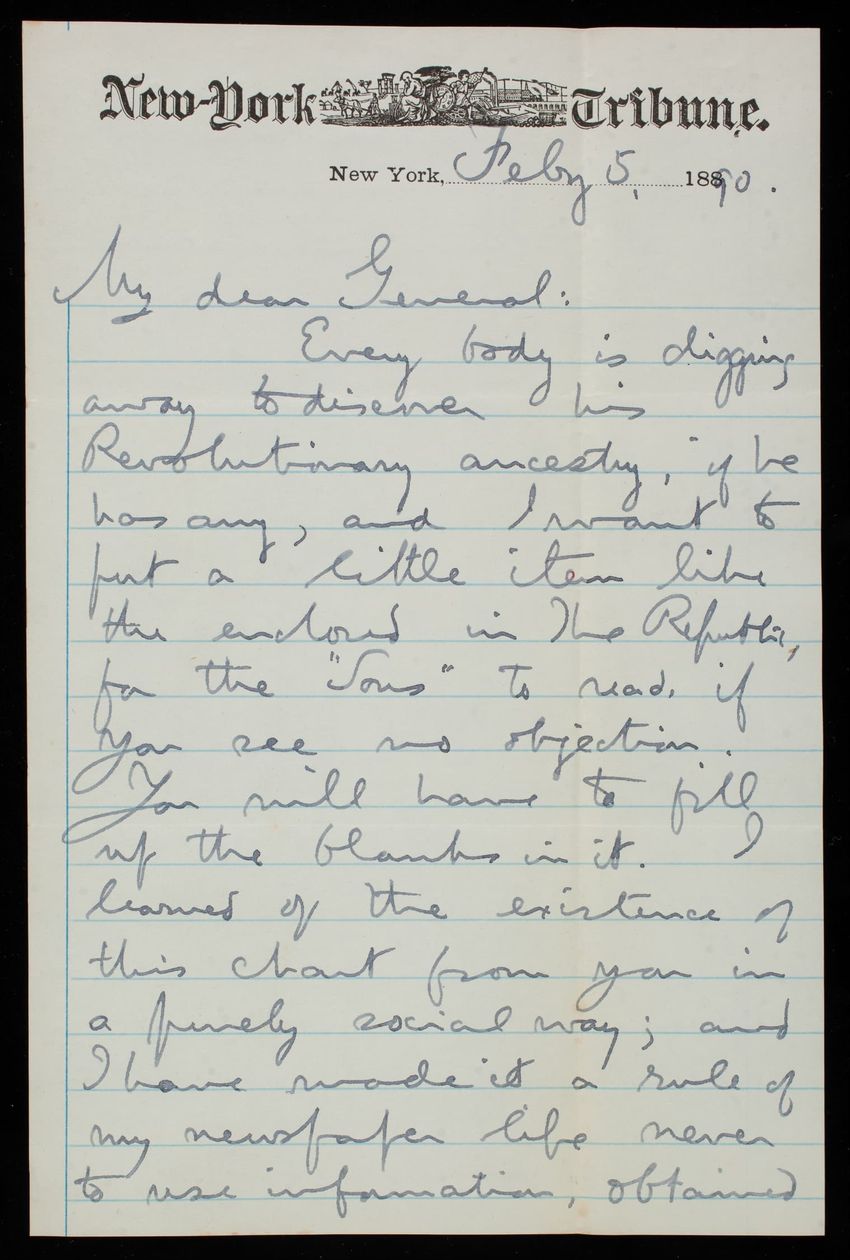 New-York Tribune.
New York, Feby 5, 1890.
My dear General:
Every body is digging
away to discover his
Revolutionary ancestry, if he
has any, and I want to
put a little item like
the enclosed in The Republic,
for the "Sons" to read, if
you see no objection.
You will have to fill
up the blanks in it. I
learned of the existence of
this chart from you in
a purely social way; and
I have made it a rule of
my newspaper life never
to use information, obtained